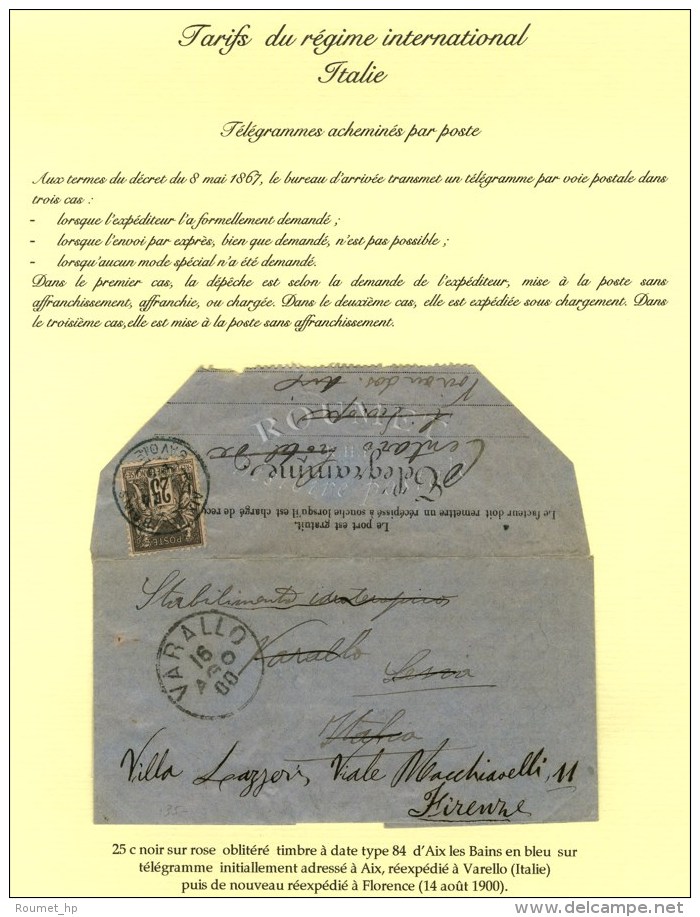 Tarifs du régime international
Italie
Télégrammes acheminés par poste
Aux termes du décret du 8 mai 1867, le bureau d'arrivée transmet un télégramme par voie postale dans
trois cas :
- lorsque l'expéditeur l'a formellement demandé ;
- lorsque l'envoi par exprès, bien que demandé, n'est pas possible ;
- lorsqu'aucun mode spécial n'a été demandé.
Dans le premier cas, la dépêche est selon la demande de l'expéditeur, mise à la poste sans
affranchissement, affranchie, ou chargée. Dans le deuxième cas, elle est expédiée sous chargement. Dans
le troisième cas,elle est mise à la poste sans affranchissement.
ROUMET
Télégramme
Le port est gratuit.
Le facteur doit remettre un récépissé à souche lorsqu'il est chargé de rec
25
POSTE
Stabilimento
VARALLO
16
AGO
00
Varallo
Italia
Villa Lazzeri, Viale Macchiavelli, 11
Firenze
35-
25 c noir sur rose oblitéré timbre à date type 84 d'Aix les Bains en bleu sur
télégramme initiallement adressé à Aix, réexpédié à Varello (Italie)
puis de nouveau réexpédié à Florence (14 août 1900).
Roumet_hp
delcampe.net